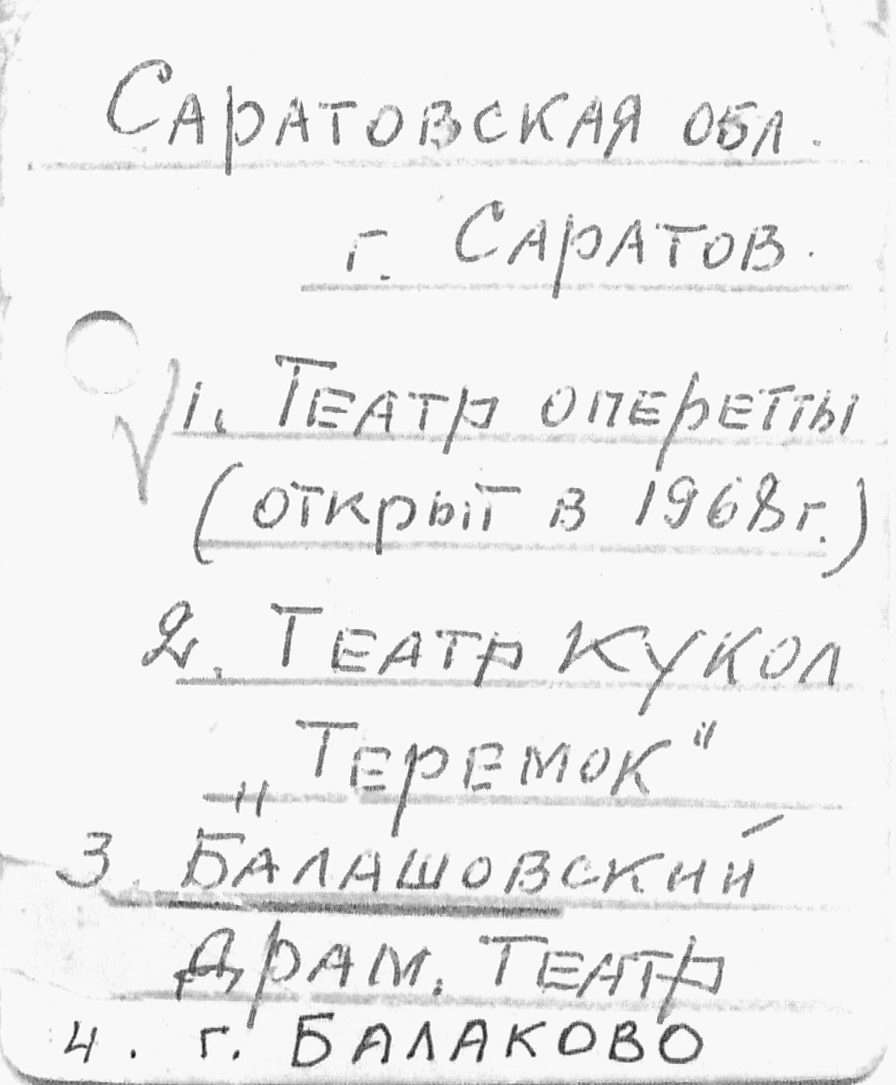 Саратовская обл.
г. Саратов.
1. Театр оперетты
(открыт в 1968г.)
2. Театр Кукол
„Теремок"
3. Балашовский
Драм. Театр
4. г. Балаково